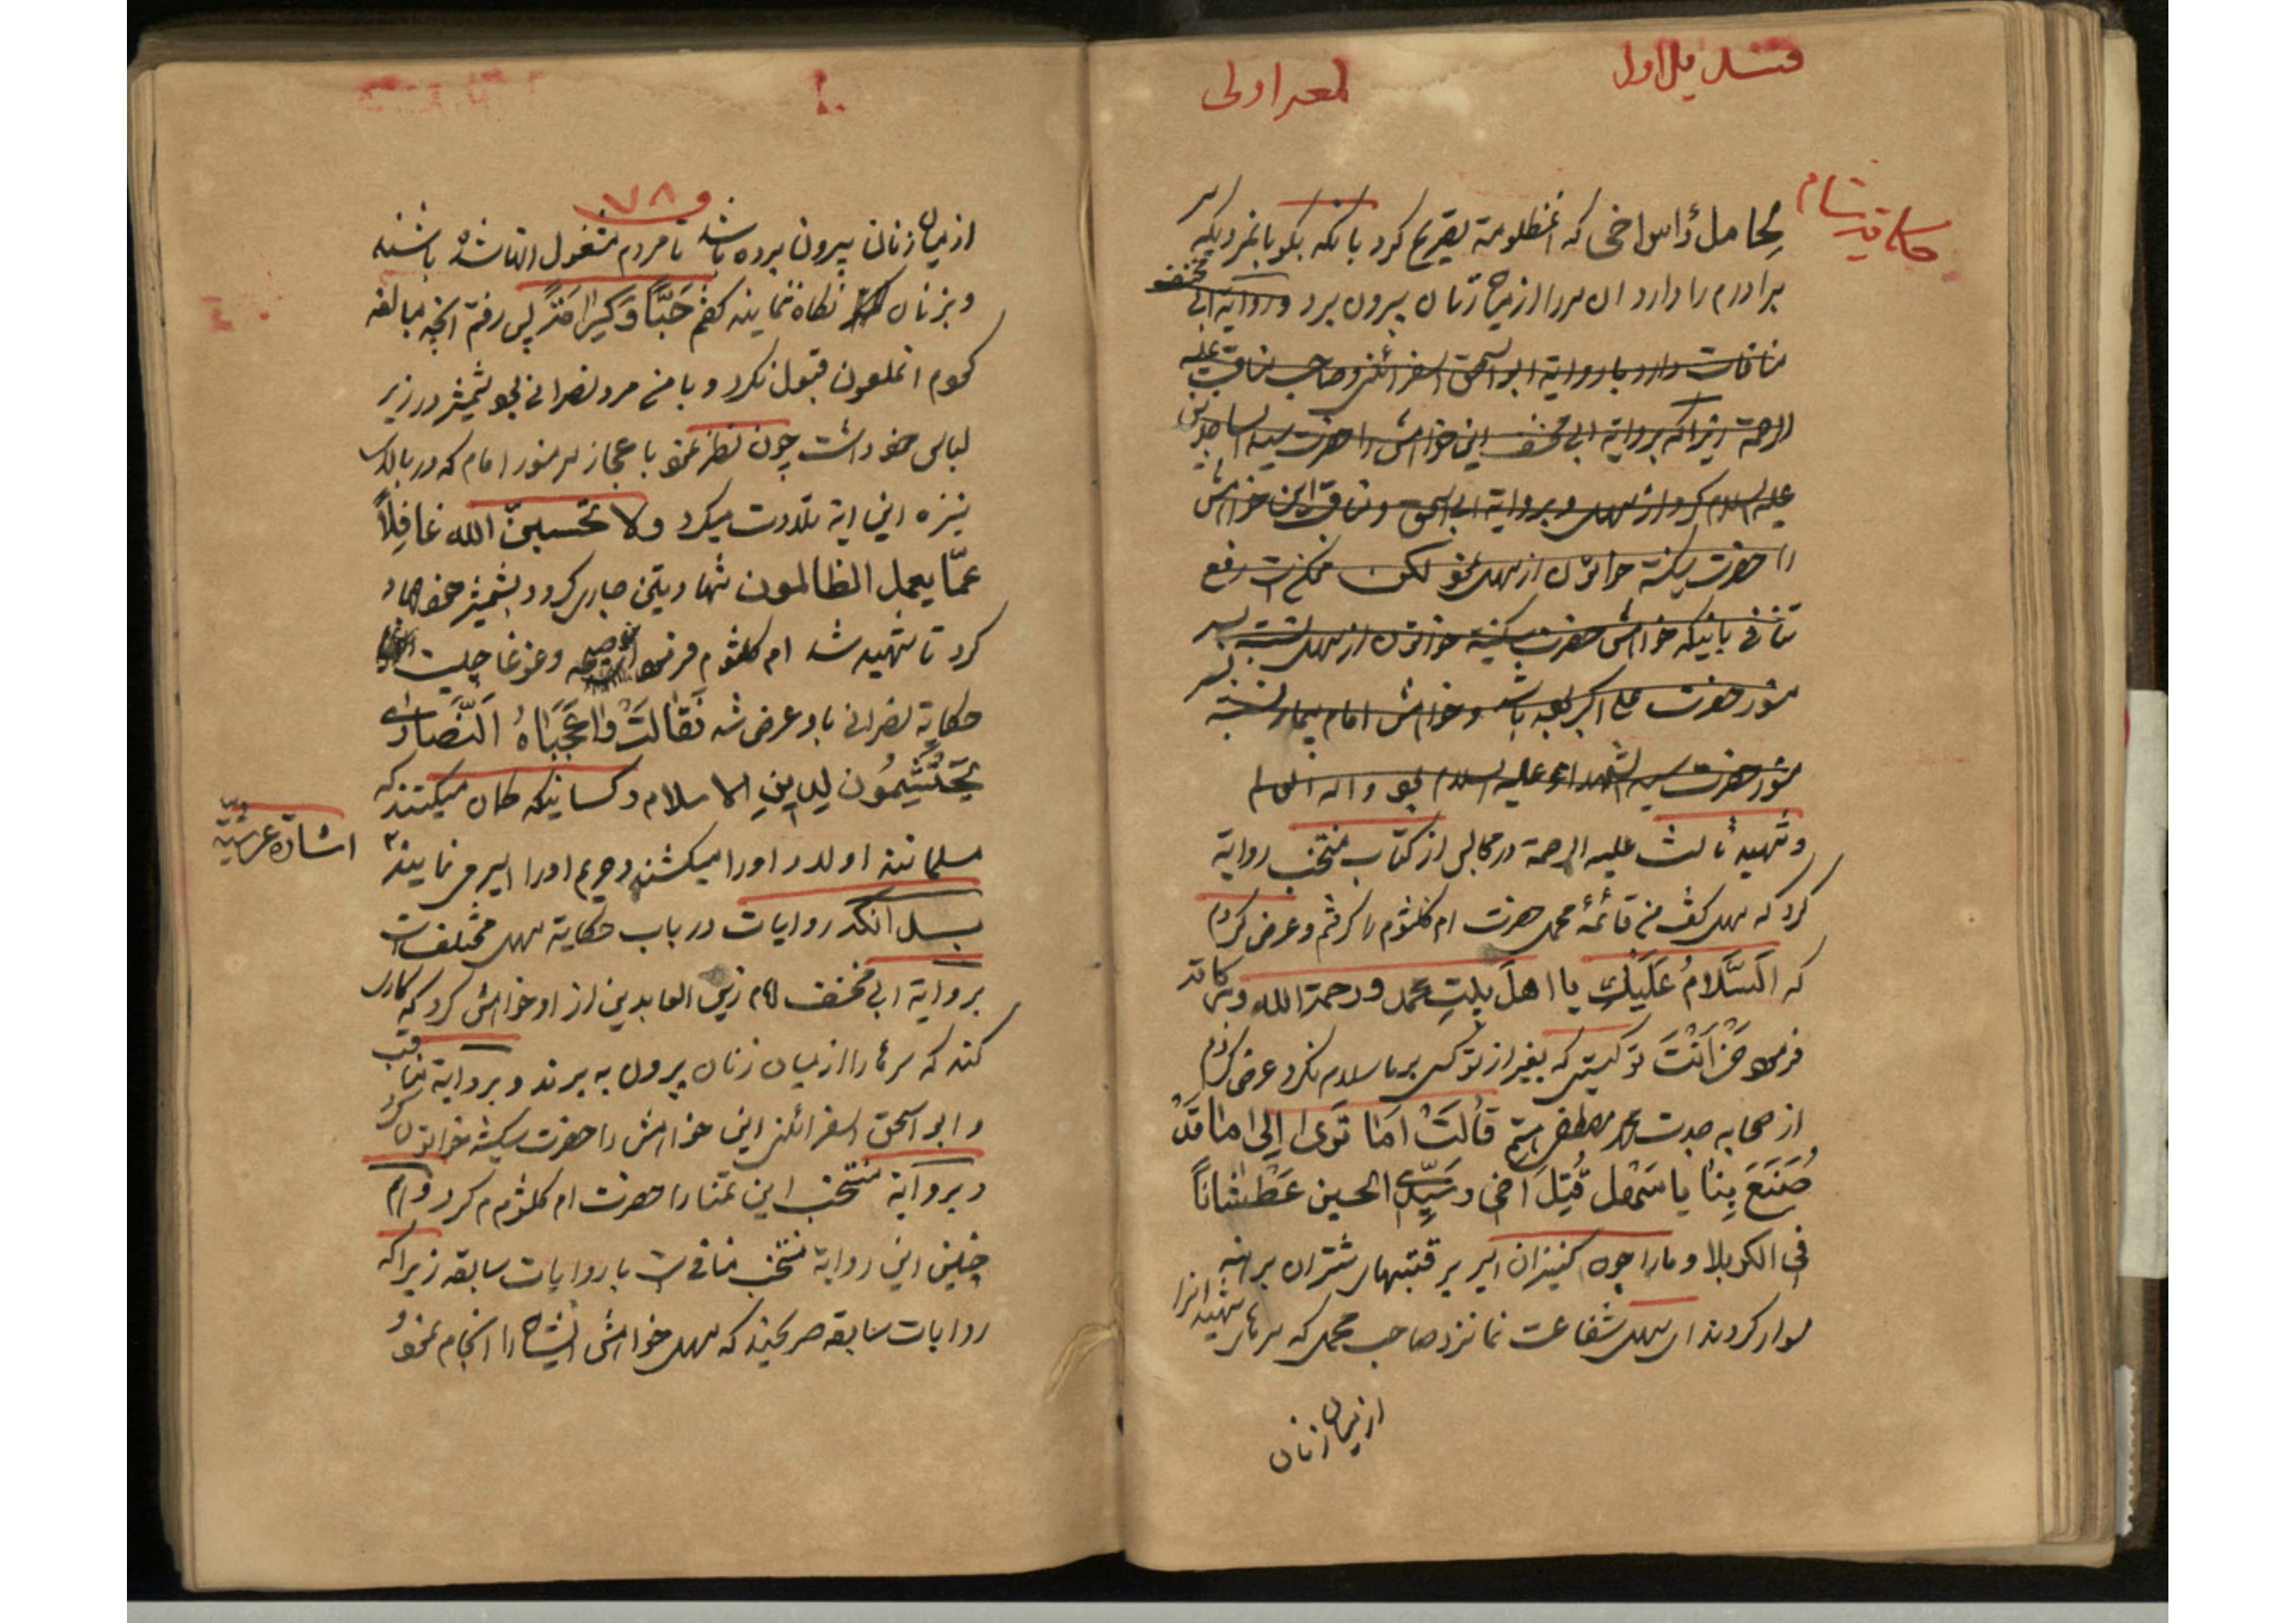 قندیل اول
لمعه اولی
حکایة شام
لحامل رأس اخی که انمظلومة تصریح کرد بانکه بگو بانمردیکه سر
برادرم را دارد ان سر را از میان زنان بیرون برد و روایة ابی مخنف
منافات دارد با روایة ابو اسحق اسفرائنی و صاحب مناقب علیه
الرحمة زیرا که بروایة ابی مخنف این خواهش را حضرت سید الساجدین
علیه السلام کرد از سهل و بروایة ابی اسحق و مناقب این خواهش
را حضرت سکینه خواتون از سهل نمود لکن ممکن است رفع
تنافی باینکه خواهش حضرت سکینه خواتون از سهل نسبت بسر
منور حضرت علی اکبر بوده باشد و خواهش امام بیمار نسبت بسر
منور حضرت سید الشهداء علیه السلام بود و الله العالم
و شهید ثالث علیه الرحمة در مجالس از کتاب منتخب روایة
کرد که سهل گفت من قائمهٔ محمل حضرت ام کلثوم را گرفتم و عرض کردم
که اَلسَّلامُ عَلَیْکُم یا اهلَ بیتِ محمد و رحمة الله وبرکاته
فرمود مَنْ اَنْتَ تو کیستی که بغیر از تو کسی بر ما سلام نکرد عرض کردم
از صحابه جدت محمد مصطفی هستم قالَتْ اَما تَری اِلی ما قَدْ
صُنِعَ بِنا یا سَهْل قُتِلَ اَخی و سَیِّدی الحسین عَطْشاناً
فی الکربلا و ما را چون کنیزان اسیر بر قتبهای شتران برهنه
سوار کردند ای سهل شفاعت نما نزد صاحب محمل که سرهای شهیدانرا
از میان زنان
۷۸
از میان زنان بیرون برده باشد تا مردم مشغول التماشا باشند
و بزنان نگاه ننمایند گفتم حَبّاً وَ کَرامَةً پس رفتم انچه مبالغه
کردم انملعون قبول نکرد و با من مرد نصرانی بود شمشیر در زیر
لباس خود داشت چون نظر نمود باعجاز سر منور امام که در بالای
نیزه این ایه تلاوت میکرد ولا تحسبنّ الله غافِلاً
عمّا یعمل الظالمون شهادتین جاری کرد و بشمشیر خود جهاد
کرد تا شهید شد ام کلثوم فرمود و غوغا چیست
حکایة نصرانی باو عرض شد فَقالَتْ واعَجَباهُ اَلنَّصاری
یَحْتَشِمُون لِدِینِ الاسلام و کسانیکه گمان میکنند که
مسلمانند اولاد او را میکشند و حرم او را اسیر می نمایند
اشارة عرشیّة
بدانکه روایات در باب حکایة سهل مختلف است
بروایة ابی مخنف امام زین العابدین از او خواهش کرد که کاری
کند که سرها را از میان زنان بیرون به برند و بروایة مناقب
و ابو اسحق اسفرائنی این خواهش را حضرت سکینه خواتون کرد
و بروایة منتخب این تمنا را حضرت ام کلثوم کرد و هم
چنین این روایة منتخب منافی است با روایات سابقه زیرا که
روایات سابقه صریحند که سهل خواهش ایشان را انجام نمود و